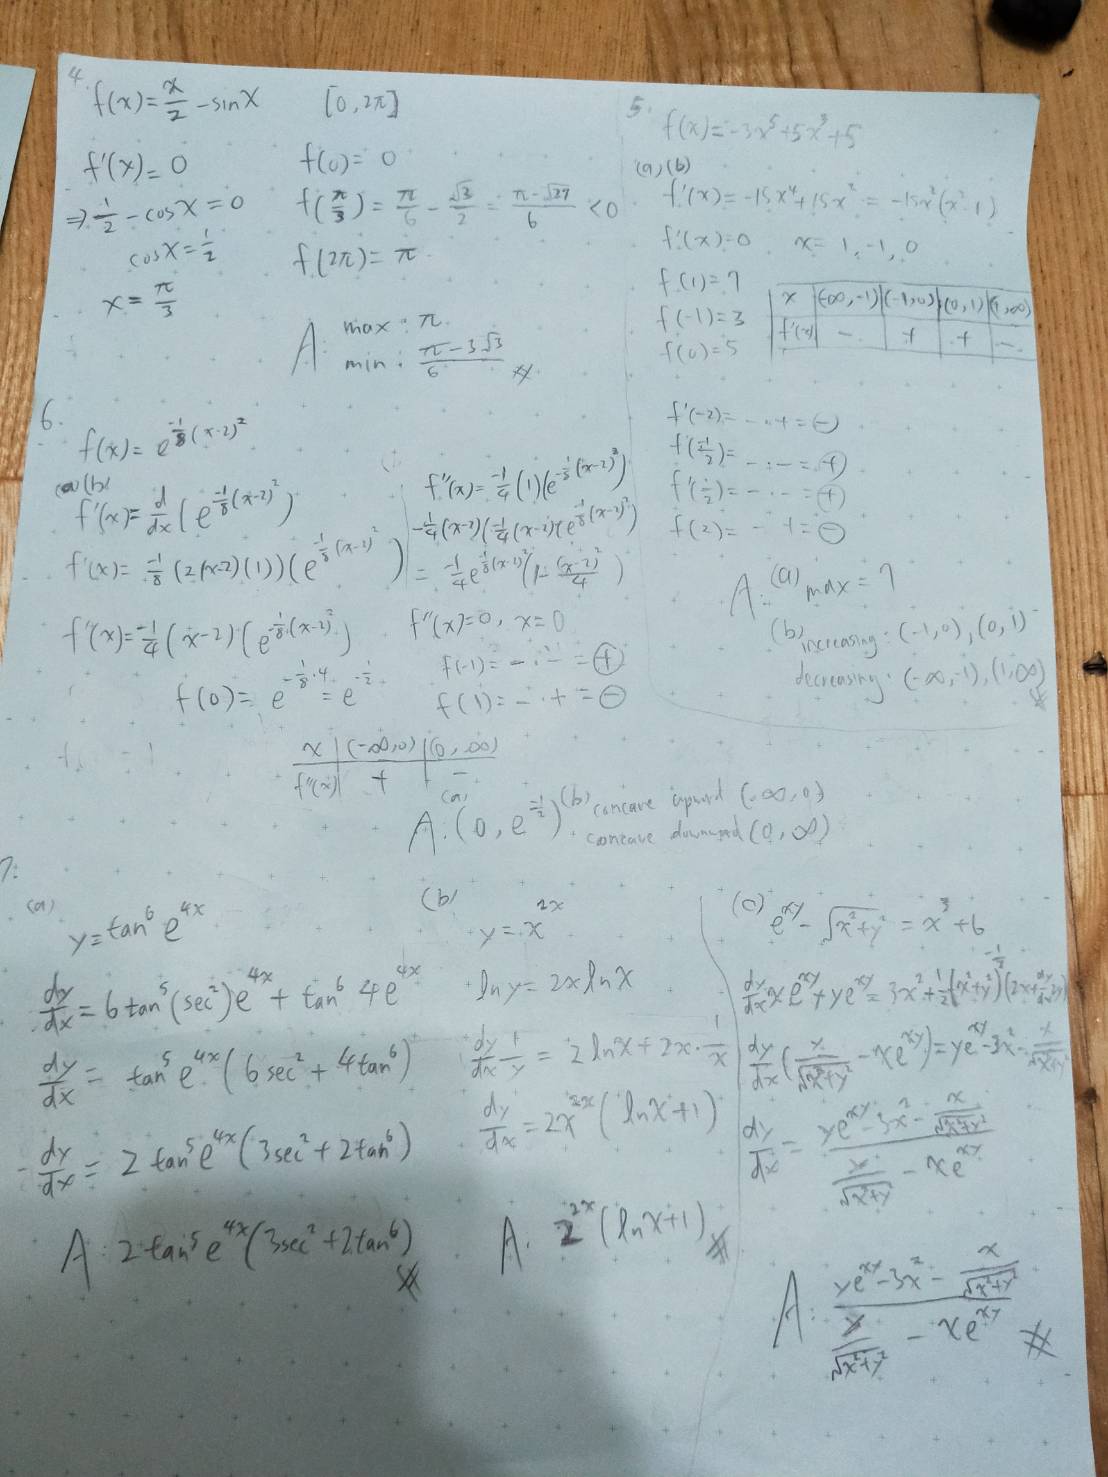 4.
f(x) = x/2 - sinx [0, 2π]
f'(x) = 0
⇒ 1/2 - cosx = 0
cosx = 1/2
x = π/3
f(0) = 0
f(π/3) = π/6 - √3/2 = (π-√27)/6 < 0
f(2π) = π
A: max: π
min: (π-3√3)/6
5.
f(x) = -3x^5 + 5x^3 + 5
(a)(b)
f'(x) = -15x^4 + 15x^2 = -15x^2(x^2-1)
f'(x) = 0 x = 1, -1, 0
f(1) = 7
f(-1) = 3
f(0) = 5
x | (-∞,-1) | (-1,0) | (0,1) | (1,∞)
f'(x) | - | + | + | -
f'(-2) = - · + = ⊖
f'(-1/2) = - · - = ⊕
f'(1/2) = - · - = ⊕
f(2) = - + = ⊖
A: (a) max = 7
(b) increasing: (-1,0), (0,1)
decreasing: (-∞,-1), (1,∞)
6.
f(x) = e^(-1/8(x-2)^2)
(a)(b)
f'(x) = d/dx (e^(-1/8(x-2)^2))
f'(x) = -1/8 (2(x-2)(1))(e^(-1/8(x-2)^2))
f'(x) = -1/4 (x-2) · (e^(-1/8(x-2)^2))
f(0) = e^(-1/8·4) = e^(-1/2)
f''(x) = -1/4 (1)(e^(-1/8(x-2)^2))
-1/4(x-2)(-1/4(x-2)(e^(-1/8(x-2)^2))
= -1/4 e^(-1/8(x-2)^2) (1 - (x-2)^2/4)
f''(x) = 0, x = 0
f(-1) = - · - = ⊕
f(1) = - · + = ⊖
x | (-∞,0) | (0,∞)
f''(x) | + | -
A: (a) (0, e^(-1/2)) (b) concave upward (-∞,0)
concave downward (0,∞)
7.
(a)
y = tan^6 e^4x
dy/dx = 6tan^5(sec^2)e^4x + tan^6 4e^4x
dy/dx = tan^5 e^4x (6sec^2 + 4tan^6)
dy/dx = 2tan^5 e^4x (3sec^2 + 2tan^6)
A: 2tan^5 e^4x (3sec^2 + 2tan^6)
(b)
y = x^2x
lny = 2xlnx
dy/dx 1/y = 2lnx + 2x · 1/x
dy/dx = 2x^2x (lnx+1)
A. 2^2x (lnx+1)
(c) e^xy - √(x^2+y^2) = x^3 + 6
dy/dx xe^xy + ye^xy = 3x^2 + 1/2 (x^2+y^2)^(-1/2) (2x + dy/dx 2y)
dy/dx (y/√(x^2+y^2) - xe^xy) = ye^xy - 3x^2 - x/√(x^2+y^2)
dy/dx = (ye^xy - 3x^2 - x/√(x^2+y^2)) / (y/√(x^2+y^2) - xe^xy)
A: (ye^xy - 3x^2 - x/√(x^2+y^2)) / (y/√(x^2+y^2) - xe^xy)